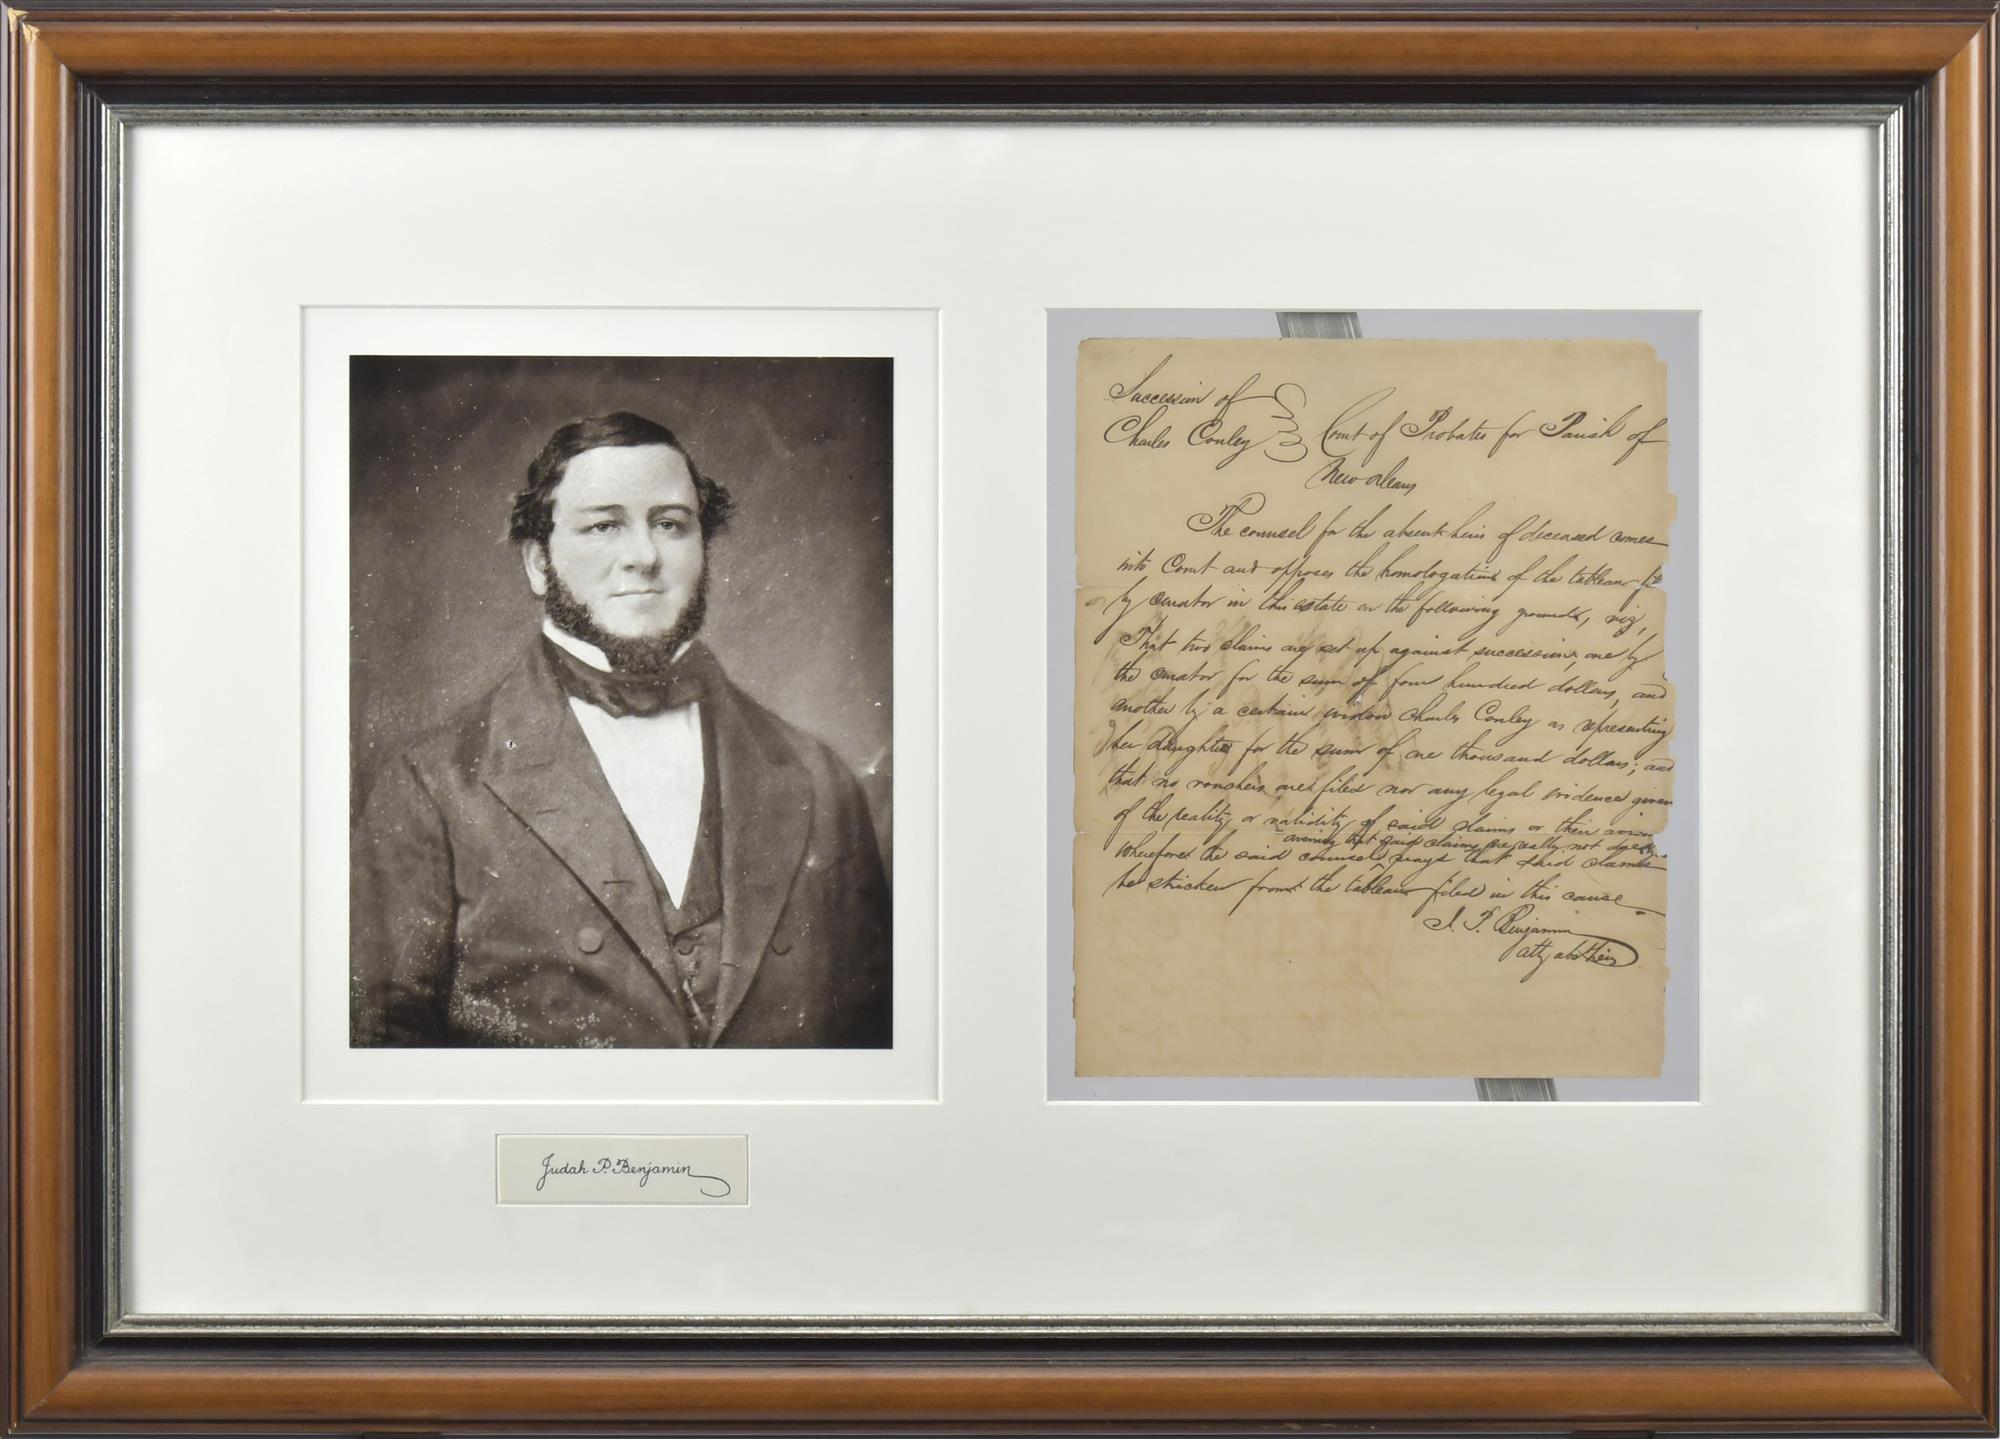 Succession of
Charles Conley
Court of Probates for Parish of
New Orleans
The counsel for the absent heirs of deceased comes
into Court and opposes the homologation of the tableau
by curator in this estate on the following grounds, viz,
That two claims are set up against succession, one by
the curator for the sum of four hundred dollars, and
another by a certain widow Charles Conley as representing
her daughter for the sum of one thousand dollars; and
that no vouchers are filed nor any legal evidence given
of the reality or validity of said claims or their
avering that said claims are really not
wherefore the said counsel prays that said claims
be stricken from the tableau filed in this cause
J. P. Benjamin
atty abs heirs
Judah P. Benjamin